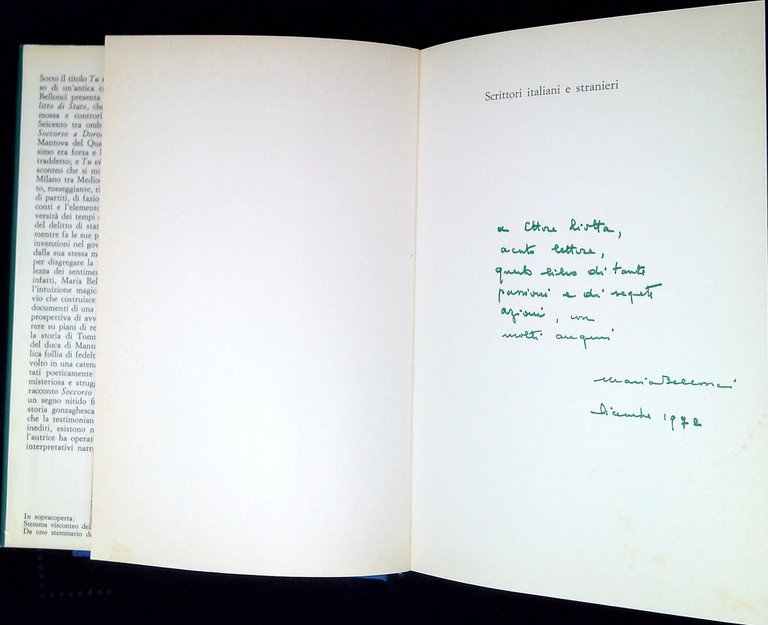 Sotto il titolo Tu
so di un'antica c
Bellonci presenta
litto di Stato, che
mossa e controri
Seicento tra omb
Soccorso a Doro
Mantova del Qua
simo era forza e l
traddetto; e Tu vi
sconteo che si mu
Milano tra Medio
to, rosseggiante, ri
di partiti, di fazio
conti e l'elemento
versità dei tempi
del delitto di stat
mentre fa le sue p
invenzioni nel gov
dalla sua stessa m
per disgregare la
lezza dei sentimen
infatti, Maria Bel
l'intuizione magic
vio che costruisce
documenti di una
prospettiva di avv
rere su piani di re
la storia di Tomm
del duca di Manto
lica follia di fedelt
volto in una catena
tati poeticamente
misteriosa e strugg
racconto Soccorso
un segno nitido fi
storia gonzaghesca
che la testimonian
inediti, esistono n
l'autrice ha operat
interpretativi narr
In sopracoperta:
Stemma visconteo del
Da uno stemmario de
Scrittori italiani e stranieri
a Ettore Liotta,
acuto lettore,
questo libro di tante
passioni e di segrete
azioni, con
molti auguri
Maria Bellonci
Dicembre 1972